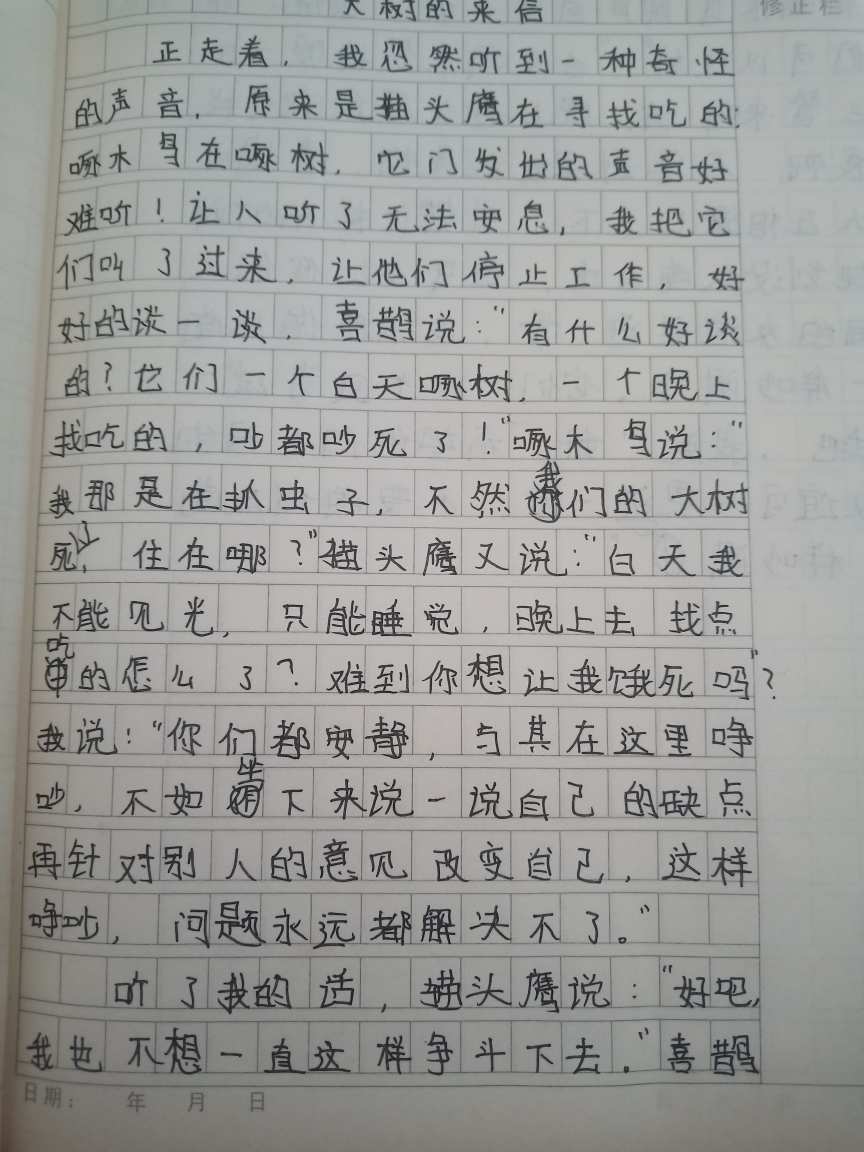 大树的来信
修正栏
正走着，我忽然听到一种奇怪
的声音，原来是猫头鹰在寻找吃的；
啄木鸟在啄树，它门发出的声音好
难听！让人听了无法安息，我把它
们叫了过来，让他们停止工作，好
好的谈一谈，喜鹊说：“有什么好谈
的？它们一个白天啄树，一个晚上
找吃的，吵都吵死了！”啄木鸟说：“
我那是在抓虫子，不然我们的大树
死了，住在哪？”猫头鹰又说：“白天我
不能见光，只能睡觉，晚上去找点
吃的怎么了？难到你想让我饿死吗”？
我说：“你们都安静，与其在这里争
吵，不如坐下来说一说自己的缺点
再针对别人的意见改变自己，这样
争吵，问题永远都解决不了。”
听了我的话，猫头鹰说：“好吧，
我也不想一直这样争斗下去。”喜鹊
日期： 年 月 日